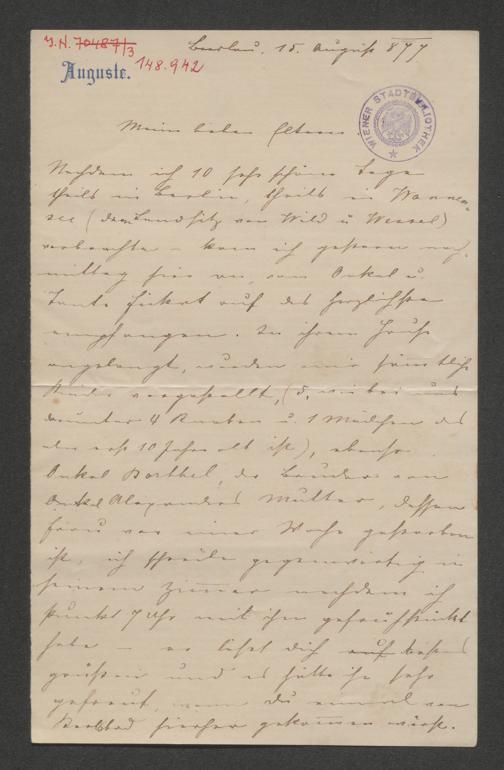 J. N. 70487/3
148.942
Auguste.
Breslau, 15. August 877
WIENER STADTBIBLIOTHEK
Meine lieben Eltern!
Nachdem ich 10 sehr schöne Tage
theils in Berlin, theils in Wannen-
see (dem Landsitz von Wild u Wessel)
verbrachte – kam ich gestern nach-
mittag hier an, vom Onkel u.
Tante Fickert auf das herzlichste
empfangen. In ihrem Hause
angelangt, wurden mir sämmtliche
Kinder vorgestellt, (5, wie bei uns
darunter 4 Knaben u. 1 Mädchen das
erst 10 Jahre alt ist), ebenso
Onkel Barthel, der Bruder von
Onkel Alexanders Mutter, dessen
Frau vor einer Woche gestorben
ist, ich schreibe gegenwärtig in
seinem Zimmer nachdem ich
punkt 7 Uhr mit ihm gefrühstückt
habe – er lässt dich auf bestens
grüßen und es hätte ihn sehr
gefreut, wenn du einmal von
Karlsbad hierher gekommen wärst.